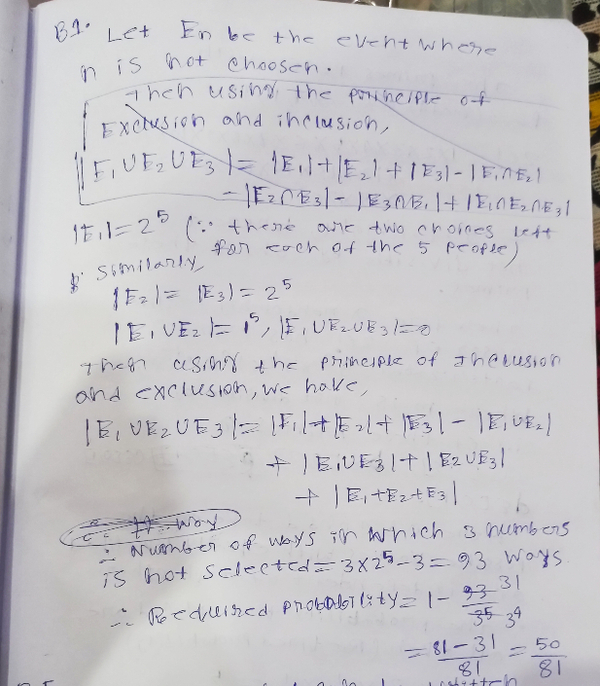 B1. Let En be the event where
n is not choosen.
Then using the principle of
Exclusion and inclusion,
|E₁∪E₂∪E₃| = |E₁|+|E₂|+|E₃|-|E₁∩E₂|
-|E₂∩E₃|-|E₃∩E₁|+|E₁∩E₂∩E₃|
|E₁|=2⁵ (∵ there are two choices left
for each of the 5 people)
Similarly,
|E₂|= |E₃|=2⁵
|E₁∪E₂|=1⁵, |E₁∪E₂∪E₃|=0
Then using the principle of inclusion
and exclusion, we have,
|E₁∪E₂∪E₃|= |E₁|+|E₂|+|E₃|-|E₁∪E₂|
+|E₁∪E₃|+|E₂∪E₃|
+|E₁+E₂+E₃|
∴ Number of ways in which 3 numbers
is not selected=3×2⁵-3=93 ways
∴ Required probability=1-93/3⁵ 31/3⁴
=81-31/81=50/81